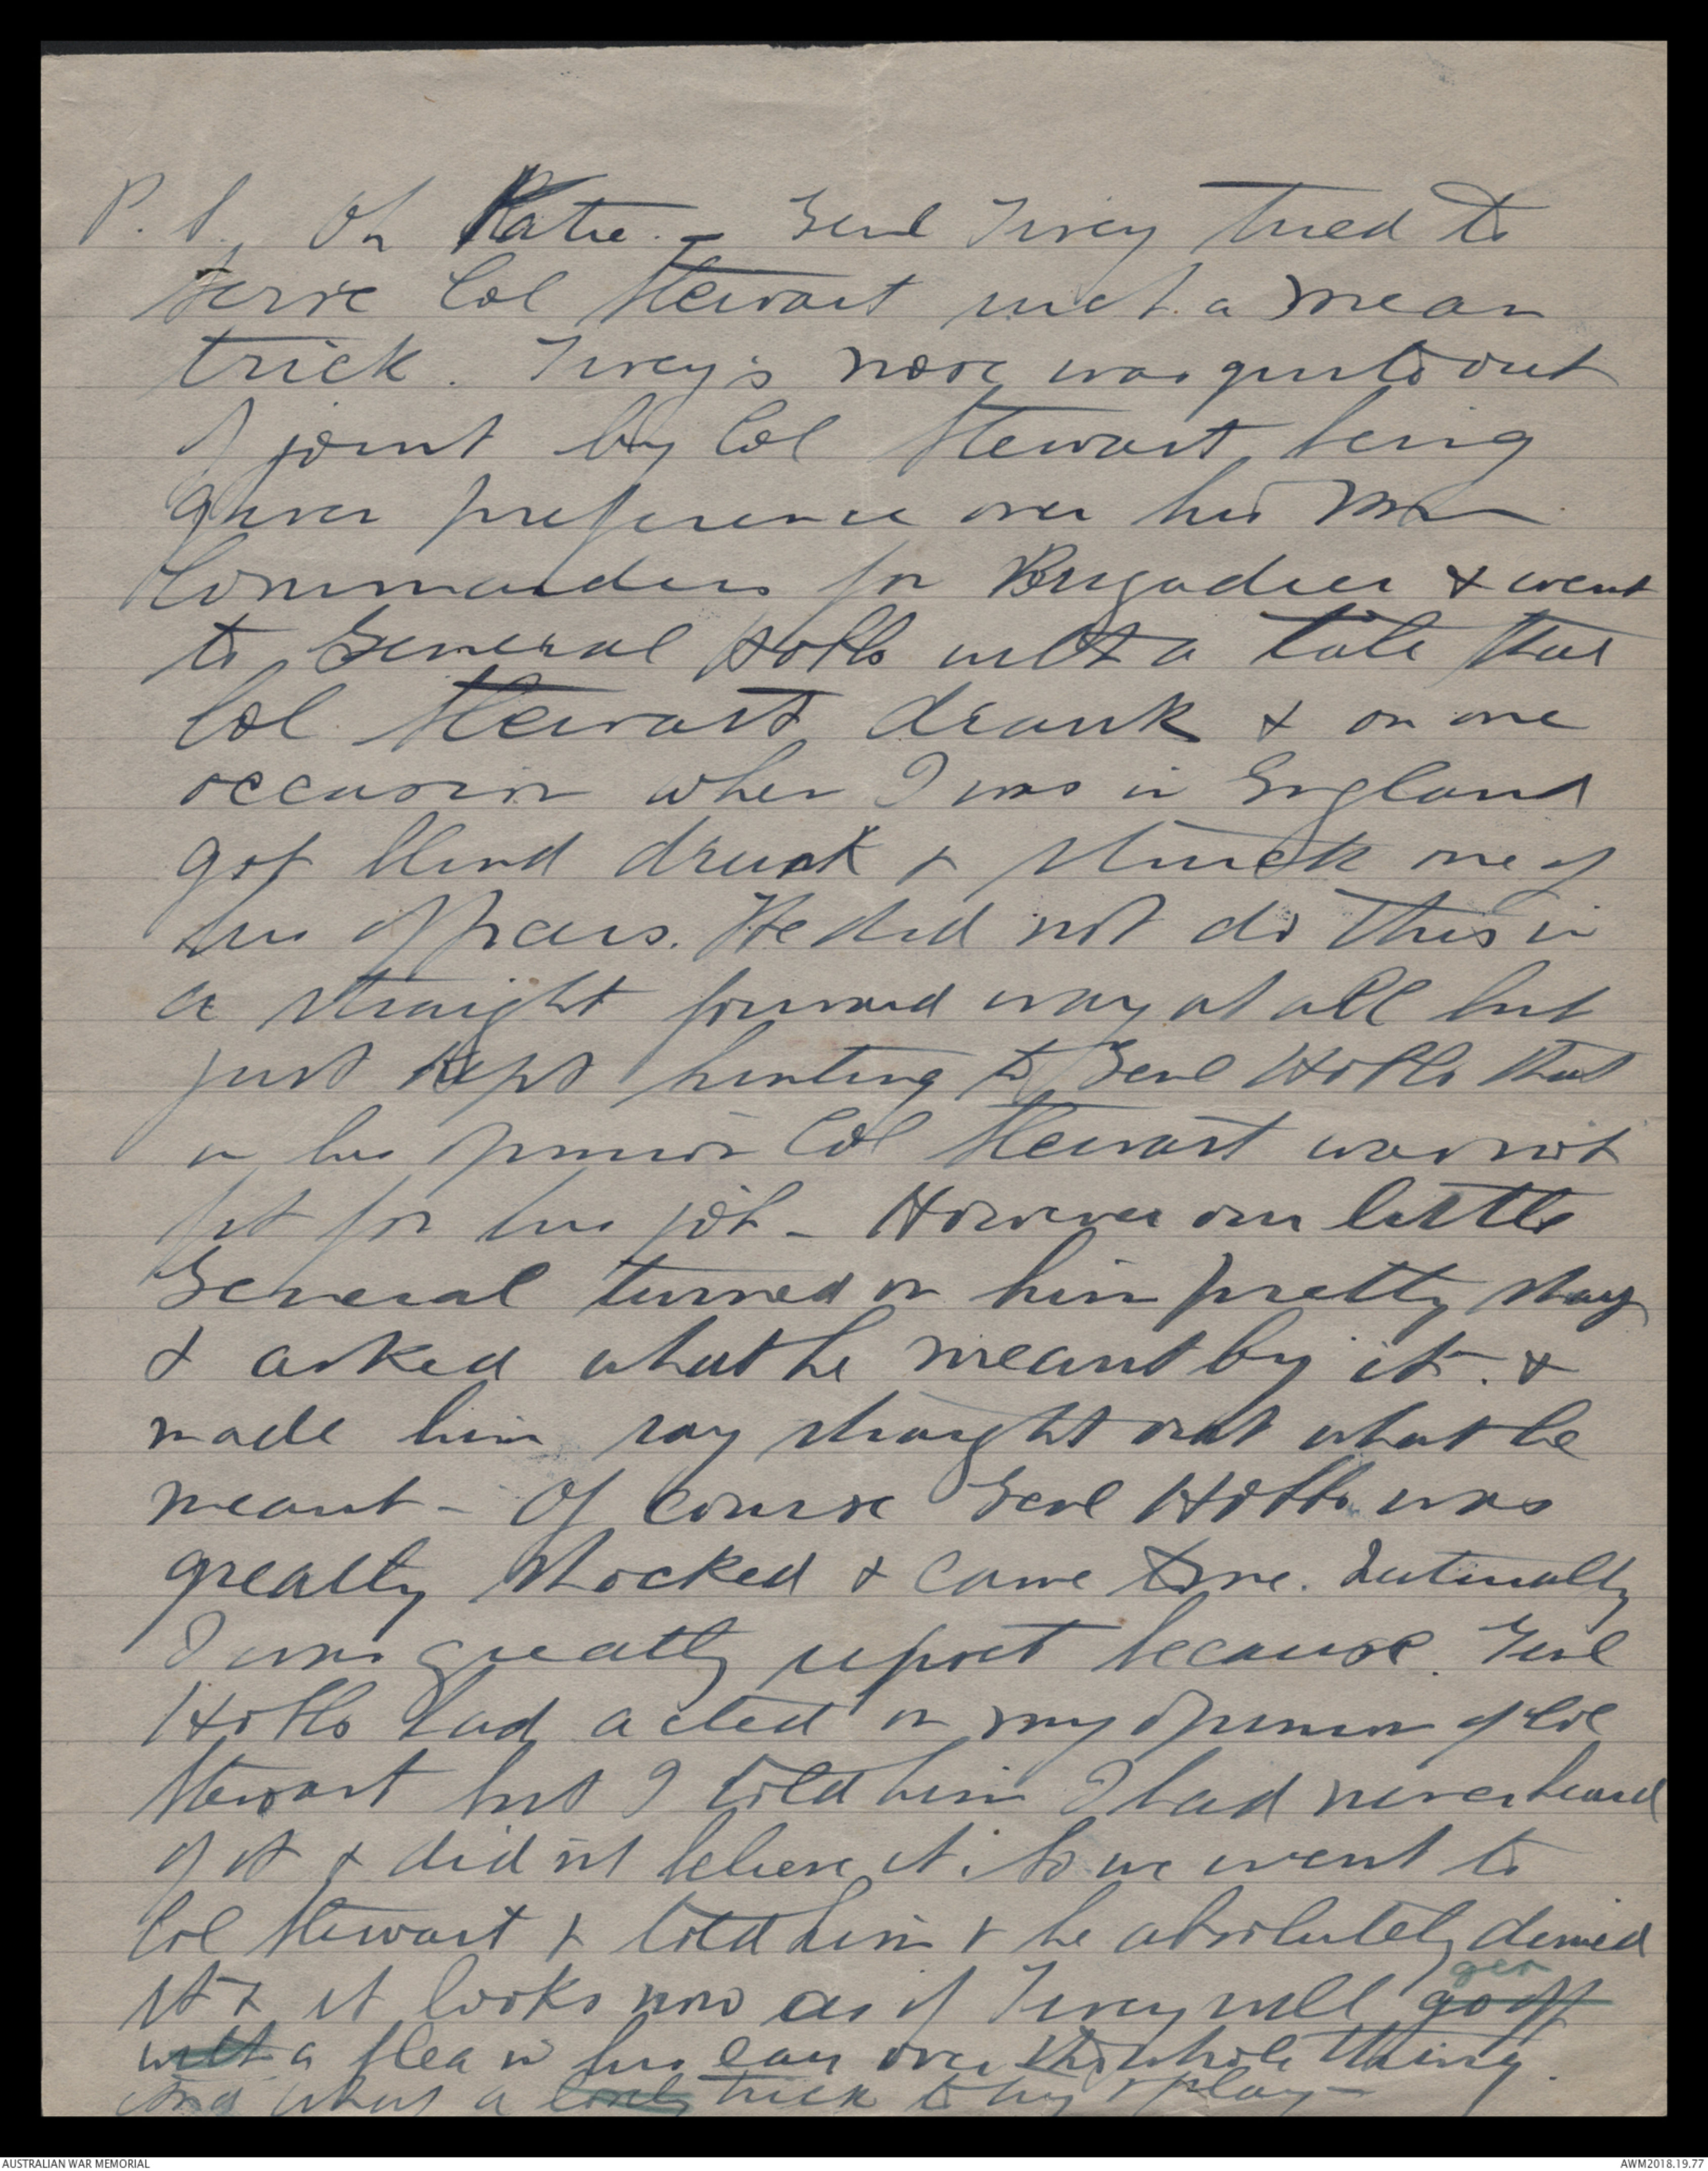 P.S. Oh Katie. - Genl Tivey tried to
serve Col Stewart such a mean
trick. Tivey's nose was quite out
of joint by Col Stewart being
given preference over his own
Commanders for Brigadier & went
to General Hobbs with a tale that
Col. Stewart drank & on one
occasion when I was in England
got blind drunk & struck one of
his officers. He did not do this in
a straight forward way at all but
just kept hinting to Genl Hobbs that
in his opinion Col Stewart was not
fit for his job - However our little
General turned on him pretty sharp
& asked what he meant by it. &
made him say straight out what he
meant - Of course Genl Hobbs was
greatly shocked & came to me. Naturally
I was greatly upset because Genl
Hobbs had acted on my opinion of Col
Stewart but I told him I had never heard
of it & did not believe it. So we went to
Col Stewart & told him & he absolutely denied
it & it looks now as if Tivey will go off
get
with a flea in his ear over the whole thing.
And what a trick to try & play -